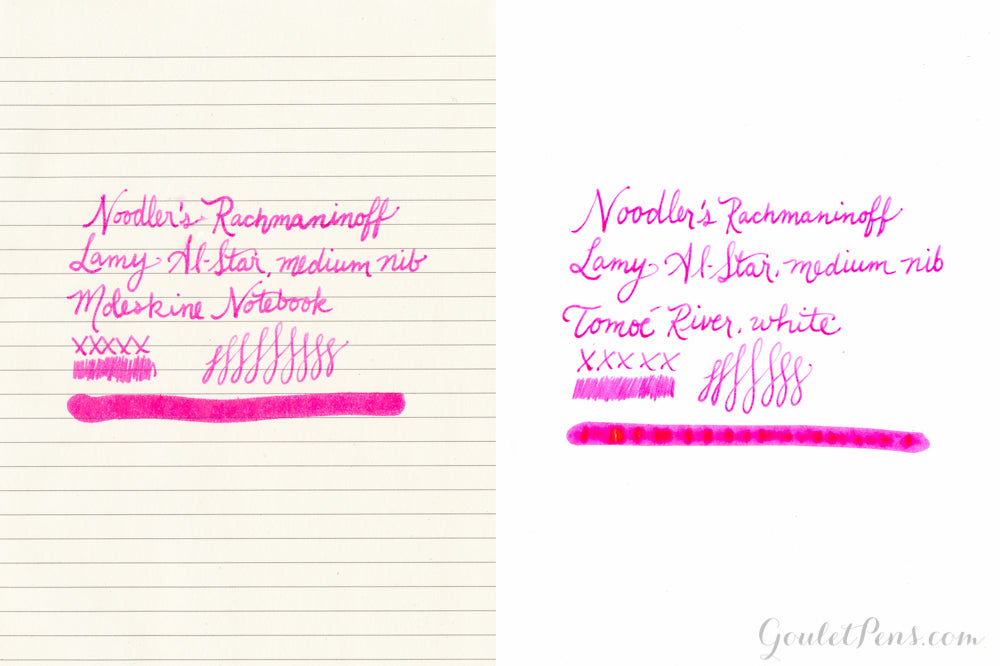 Noodler's Rachmaninoff
Lamy Al-Star, medium nib
Moleskine Notebook
XXXXX
Noodler's Rachmaninoff
Lamy Al-Star, medium nib
Tomoé River, white
XXXXX
GouletPens.com